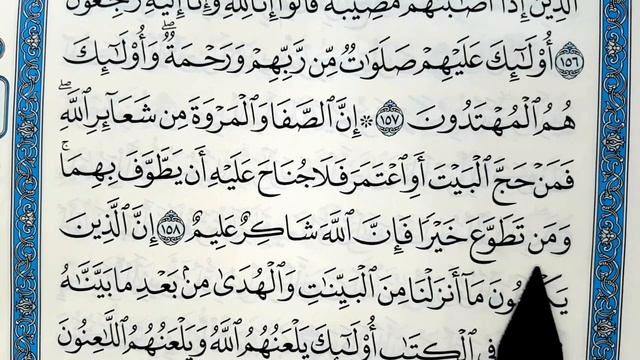 ٱلَّذِينَ إِذَآ أَصَٰبَتْهُم مُّصِيبَةٌ قَالُوٓا۟ إِنَّا لِلَّهِ وَإِنَّآ إِلَيْهِ رَٰجِعُونَ
١٥٦ أُو۟لَٰٓئِكَ عَلَيْهِمْ صَلَوَٰتٌ مِّن رَّبِّهِمْ وَرَحْمَةٌ ۖ وَأُو۟لَٰٓئِكَ
هُمُ ٱلْمُهْتَدُونَ ١٥٧ ۞ إِنَّ ٱلصَّفَا وَٱلْمَرْوَةَ مِن شَعَآئِرِ ٱللَّهِ ۖ
فَمَنْ حَجَّ ٱلْبَيْتَ أَوِ ٱعْتَمَرَ فَلَا جُنَاحَ عَلَيْهِ أَن يَطَّوَّفَ بِهِمَا ۚ
وَمَن تَطَوَّعَ خَيْرًا فَإِنَّ ٱللَّهَ شَاكِرٌ عَلِيمٌ ١٥٨ إِنَّ ٱلَّذِينَ
مَآ أَنزَلْنَا مِنَ ٱلْبَيِّنَٰتِ وَٱلْهُدَىٰ مِنۢ بَعْدِ مَا بَيَّنَّٰهُ
فِى ٱلْكِتَٰبِ أُو۟لَٰٓئِكَ يَلْعَنُهُمُ ٱللَّهُ وَيَلْعَنُهُمُ ٱللَّٰعِنُونَ